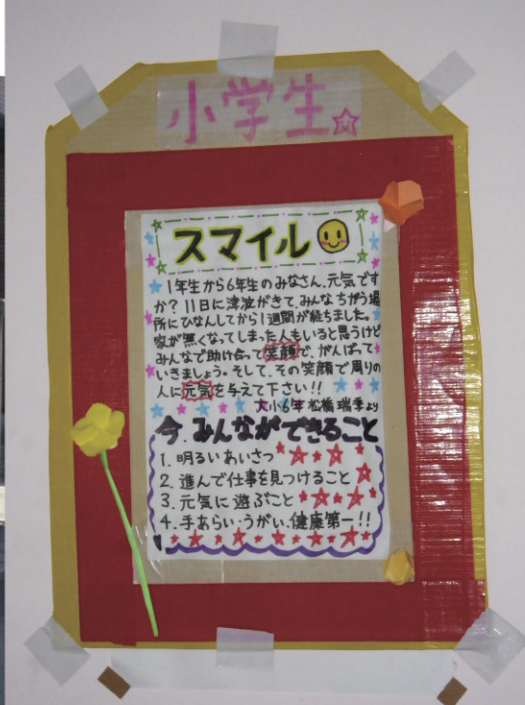 小学生
スマイル
1年生から6年生のみなさん、元気です
か?11日に津波がきて、みんなちがう場
所にひなんしてから1週間が経ちました。
家が無くなってしまった人もいると思うけど
みんなで助け合って笑顔で、がんばって
いきましょう。そして、その笑顔で周りの
人に元気を与えて下さい!!
大小6年 松橋 瑞季より
今、みんなができること
1. 明るいあいさつ
2. 進んで仕事を見つけること
3. 元気に遊ぶこと
4. 手あらい・うがい、健康第一!!